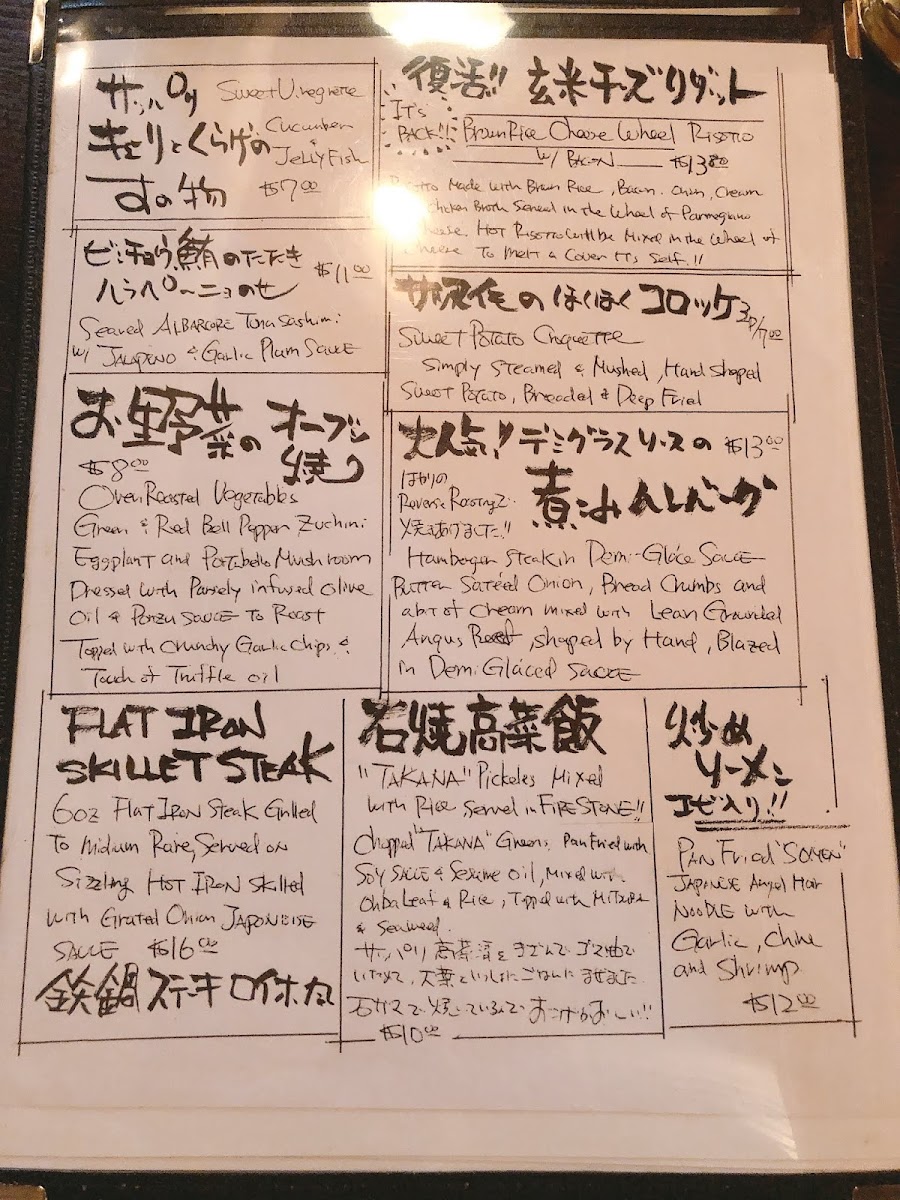 サッパリ
Sweet Vinegrette
Cucumber
きゅうりとくらげの
& Jelly Fish
すの物
$7.00
ビンチョウ鮪のたたき
ハラペーニョのせ
$11.00
Seared Albarcore Tuna Sashimi
w/ Jalapeno & Garlic Plum Sauce
お野菜のオーブン
焼り
$8.00
Oven Roasted Vegetables
Green & Red Bell Pepper Zuchini
Eggplant and Portabello Mushroom
Dressed with Parsely infused Olive
Oil & Ponzu Sauce to Roast
Topped with Crunchy Garlic Chips &
Touch of Truffle oil
FLAT IRON
SKILLET STEAK
6oz Flat Iron Steak Grilled
To Midium Rare, Served on
Sizzling Hot Iron Skilled
with Grated Onion Japoneise
Sauce $16.00
鉄鍋ステーキ
復活!! 玄米チーズリゾット
It's
BACK!!
Brown Rice Cheese Wheel Risotto
w/ Bacon $13.80
Risotto Made with Brown Rice, Bacon, Onion, Cream
Chicken Broth Served in the Wheel of Parmegiano
Cheese. Hot Risotto will be Mixed in the Wheel of
Cheese To Melt & Cover It's Self.!!
のほくほくコロッケ 3p/7.00
Sweet Potato Croquette
Simply Steamed & Mushed, Hand Shaped
Sweet Potato, Breaded & Deep Fried
大人気! デミグラスソースの $13.00
煮込みハンバーグ
Reverse Roastingで
焼きあげました!!
Hamberger Steak in Demi-Glace Sauce
Butter Satéed Onion, Bread Crumbs and
a bit of Cream mixed with Lean Grounded
Angus Beef, shaped by Hand, Blazed
in Demi Glaced Sauce
石焼高菜飯
"TAKANA" Pickeles Mixed
with Rice Served in FIRE STONE!!
Chopped "TAKANA" Greens, Pan Fried with
Soy Sauce & Sesame Oil, Mixed with
Ohba Leaf & Rice, Topped with Mitsuba
& Seaweed.
サッパリ高菜漬をきざんでゴマ油で
いためて、大葉といっしょにごはんにまぜました
石ナベで焼いているので、おこげがおいしい!!
$10.00
炒め
ソーメン
エビ入り!!
Pan Fried "SOMEN"
Japanese Angel Hair
Noodle with
Garlic, Chive
and Shrimp
$12.00